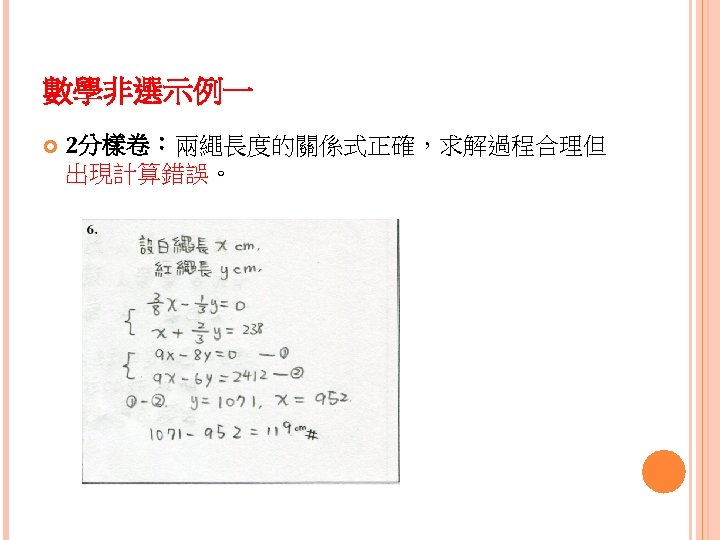 數學非選示例一
2分樣卷：兩繩長度的關係式正確，求解過程合理但
出現計算錯誤。
6.
設白繩長 x cm,
紅繩長 y cm,
{ 3/8 x - 1/3 y = 0
x + 2/3 y = 238
{ 9x - 8y = 0 —①
9x - 6y = 2412 —②
①-②. y = 1071, x = 952.
1071 - 952 = 119 cm #